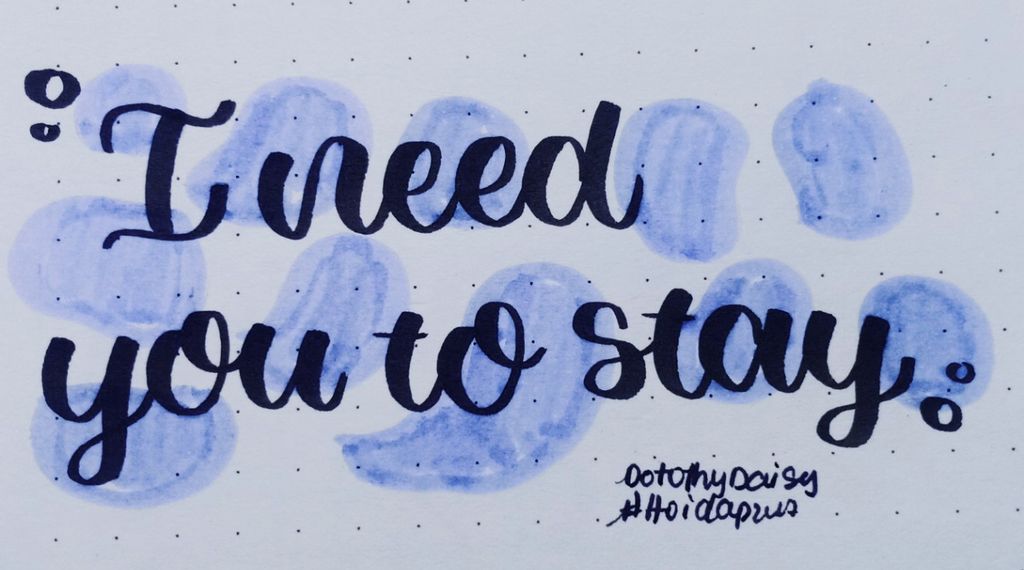 I need
you to stay
DorothyDaisy